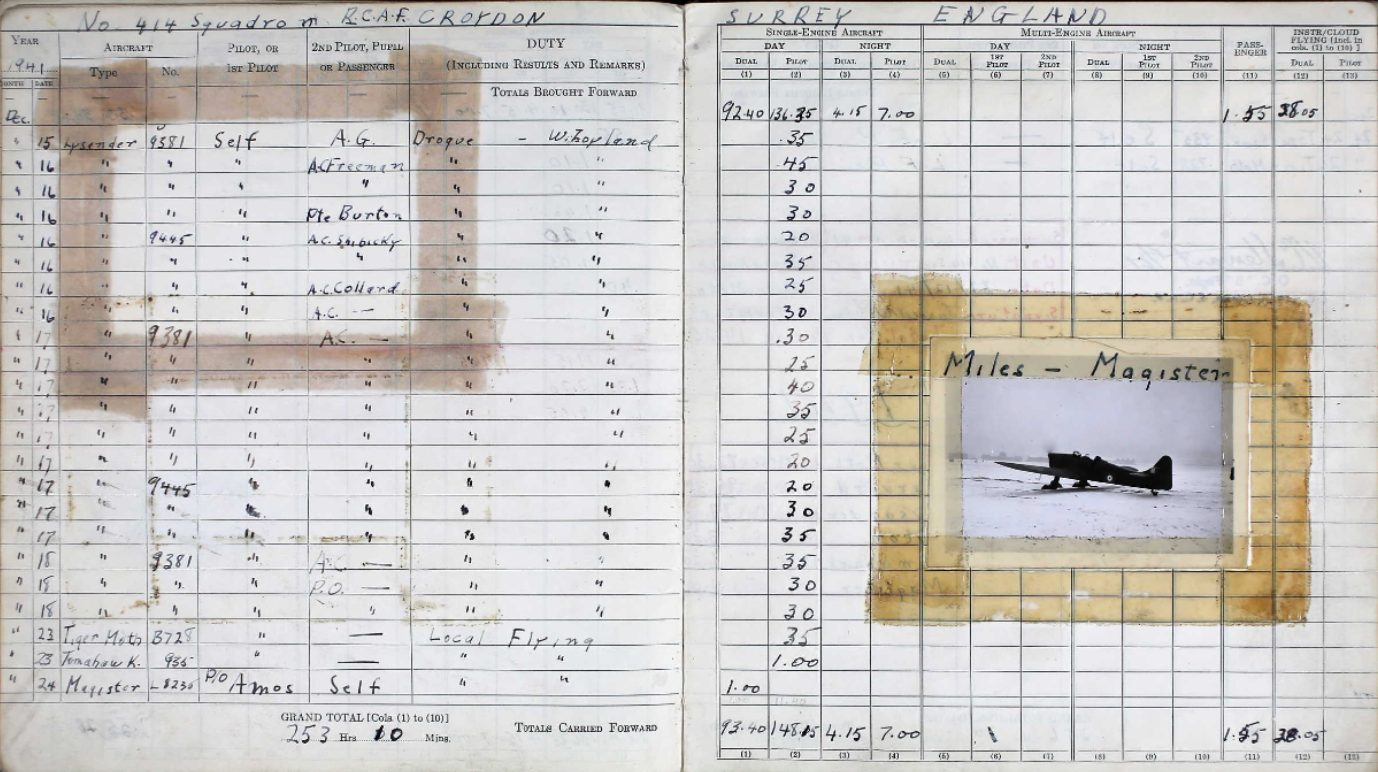 No. 414 Squadron R.C.A.F. CROYDON SURREY ENGLAND
YEAR AIRCRAFT PILOT, OR 1ST PILOT 2ND PILOT, PUPIL OR PASSENGER DUTY (INCLUDING RESULTS AND REMARKS) SINGLE-ENGINE AIRCRAFT MULTI-ENGINE AIRCRAFT PASSENGER INSTR/CLOUD FLYING [Incl. in cols. (1) to (10)]
DAY NIGHT DAY NIGHT
1941 Type No. DUAL PILOT DUAL PILOT DUAL 1ST PILOT 2ND PILOT DUAL 1ST PILOT 2ND PILOT DUAL PILOT
MONTH DATE (1) (2) (3) (4) (5) (6) (7) (8) (9) (10) (11) (12) (13)
— — — — — — TOTALS BROUGHT FORWARD
Dec. 92.40 136.35 4.15 7.00 1.55 38.05
" 15 Lysender 9381 Self A.G. Drogue – W. Zoyland .35
" 16 " " " A.C. Freeman " " .45
" 16 " " " " " " 30
" 16 " " " Pte Burton " " 30
" 16 " 9445 " A.C. " " 20
" 16 " " " " " " 35
" 16 " " " A.C. Collard " " 25
" 16 " " " A.C. — " " 30
" 17 " 9381 " A.C. — " " .30
" 17 " " " " " " 25
" 17 " " " " " " 40
" 17 " " " " " " 35
" 17 " " " " " " 25
" 17 " " " " " " 20
" 17 " 9445 " " " " 20
" 17 " " " " " " 30
" 17 " " " " " " 35
" 18 " 9381 " A.C. — " " 35
" 18 " " " P.O. — " " 30
" 18 " " " " " " 30
" 23 Tiger Moth B728 " — Local Flying 35
" 23 Tomahawk. 935 " — " " 1.00
" 24 Magister L8236 P/O Amos Self " " 1.00
GRAND TOTAL [Cols. (1) to (10)] TOTALS CARRIED FORWARD
253 Hrs 10 Mins. 93.40 148.15 4.15 7.00 1.55 38.05
(1) (2) (3) (4) (5) (6) (7) (8) (9) (10) (11) (12) (13)
Miles – Magister